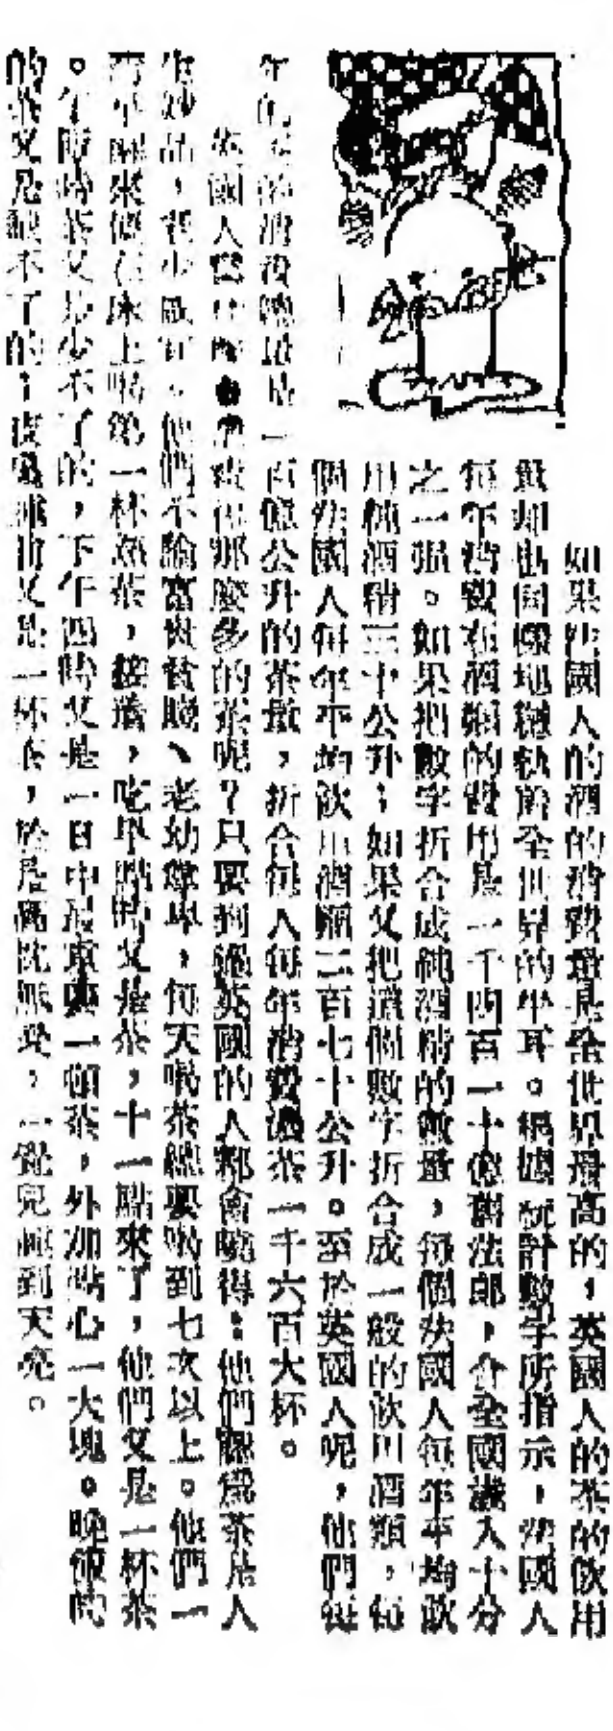 如果法國人的酒的消費量是全世界最高的，英國人的茶的飲用
量却也同樣地執於全世界的牛耳。根據統計數字所指示，法國人
每年消費在酒類的費用是一千四百一十億舊法郎，合全國歲入十分
之一强。如果把數字折合成純酒精的數量，每個法國人每年平均飲
用純酒精三十公升；如果又把這個數字折合成一般的飲用酒類，每
個法國人每年平均飲用酒類二百七十公升。至於英國人呢，他們每
年的茶的消費總量是一百億公升的茶量，折合每人每年消費濃茶一千六百大杯。
英國人爲什麽會消費得那麽多的茶呢？只要到過英國的人都會曉得：他們認爲茶是人
生妙品，他們不論富貴貧賤、老幼尊卑，每天喝茶總要喝到七次以上。他們一
清早醒來便在床上喝第一杯茶，接着，吃早點時又是茶，十一點來了，他們又是一杯茶
。午時茶又是少不了的，下午四時又是一日中最重要一頓茶，外加點心一大塊。晚飯時
的茶又是缺不了的；夜裏睡前又是一杯茶，於是高枕無憂，一覺兒睡到天亮。